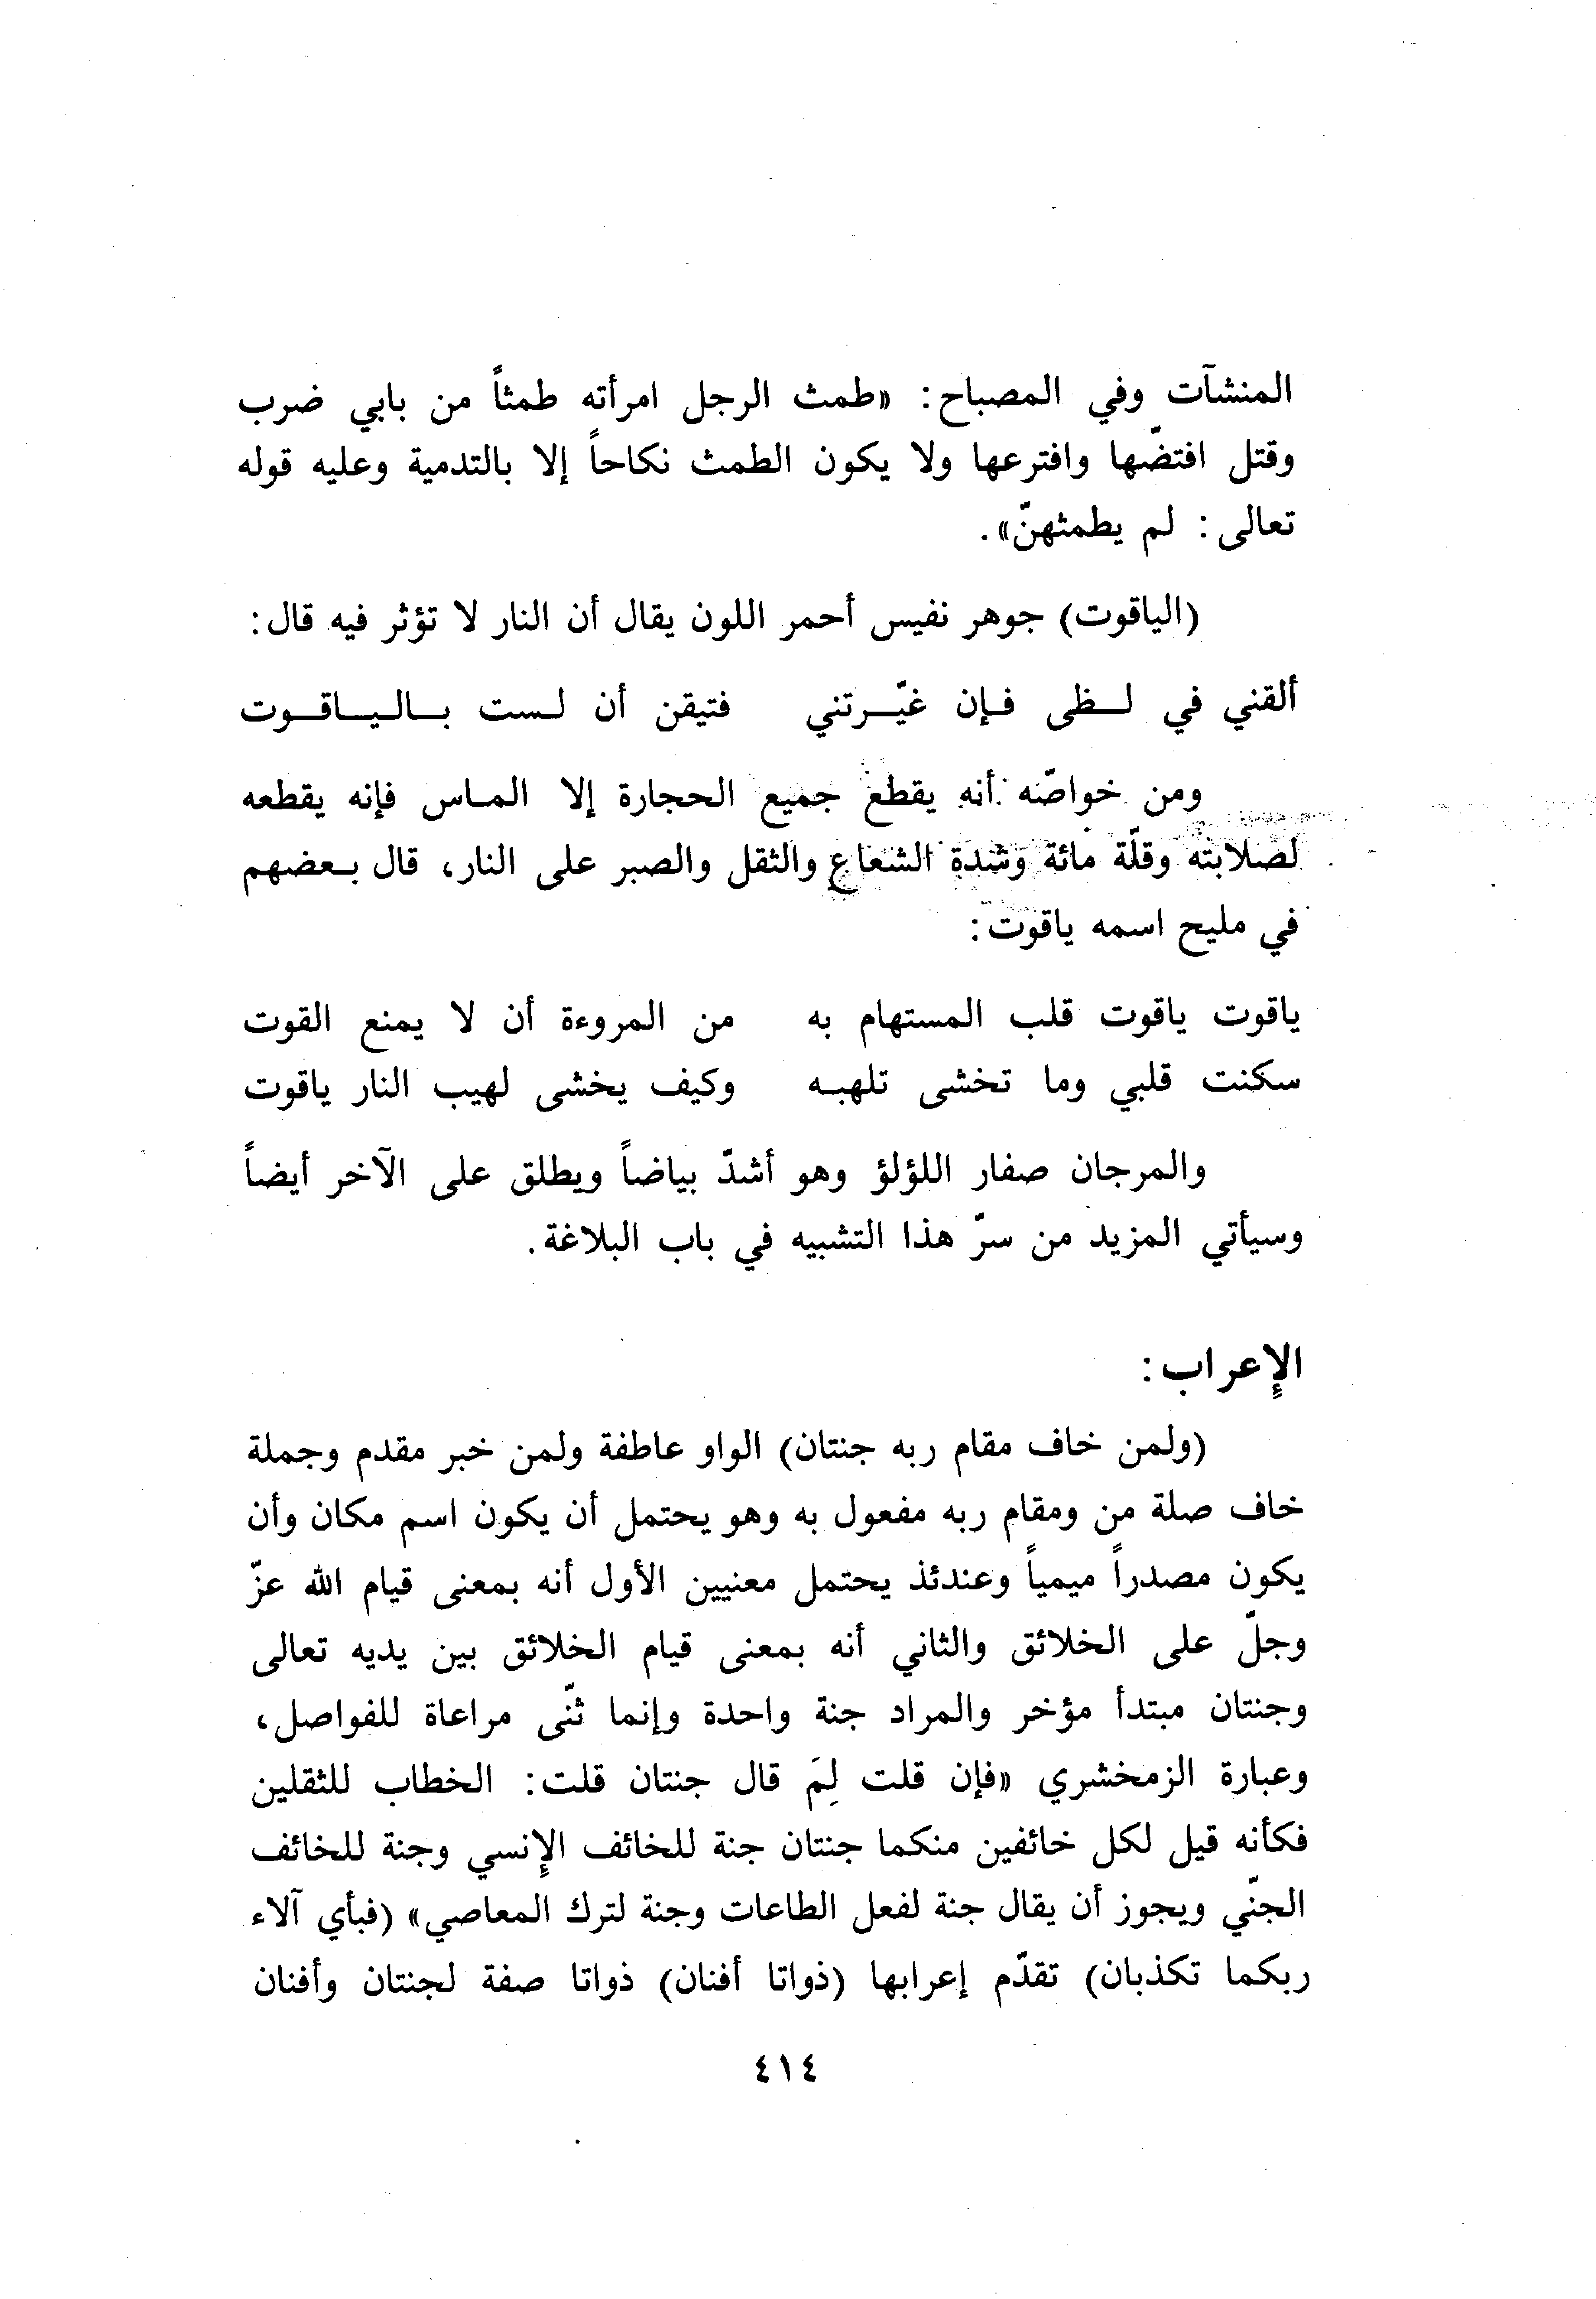 المنشآت وفي المصباح: «طمث الرجل امرأته طمثاً من بابي ضرب
وقتل افتضّها وافترعها ولا يكون الطمث نكاحاً إلا بالتدمية وعليه قوله
تعالى: لم يطمثهنّ».
(الياقوت) جوهر نفيس أحمر اللون يقال أن النار لا تؤثر فيه قال:
ألقني في لــظى فـإن غيّــرتني فتيقن أن لـست بـاليـاقـوت
ومن خواصّه أنه يقطع جميع الحجارة إلا المـاس فإنه يقطعه
لصلابته وقلّة مائة وشدة الشعاع والثقل والصبر على النار، قال بـعضهم
في مليح اسمه ياقوت:
ياقوت ياقوت قلب المستهام به من المروءة أن لا يمنع القوت
سكنت قلبي وما تخشى تلهبـه وكيف يخشى لهيب النار ياقوت
والمرجان صفار اللؤلؤ وهو أشدّ بياضاً ويطلق على الآخر أيضاً
وسيأتي المزيد من سرّ هذا التشبيه في باب البلاغة.
الإعراب:
(ولمن خاف مقام ربه جنتان) الواو عاطفة ولمن خبر مقدم وجملة
خاف صلة من ومقام ربه مفعول به وهو يحتمل أن يكون اسم مكان وأن
يكون مصدراً ميمياً وعندئذ يحتمل معنيين الأول أنه بمعنى قيام الله عزّ
وجلّ على الخلائق والثاني أنه بمعنى قيام الخلائق بين يديه تعالى
وجنتان مبتدأ مؤخر والمراد جنة واحدة وإنما ثنّى مراعاة للفواصل،
وعبارة الزمخشري «فإن قلت لِمَ قال جنتان قلت: الخطاب للثقلين
فكأنه قيل لكل خائفين منكما جنتان جنة للخائف الإنسي وجنة للخائف
الجنّي ويجوز أن يقال جنة لفعل الطاعات وجنة لترك المعاصي» (فبأي آلاء
ربكما تكذبان) تقدّم إعرابها (ذواتا أفنان) ذواتا صفة لجنتان وأفنان
٤١٤